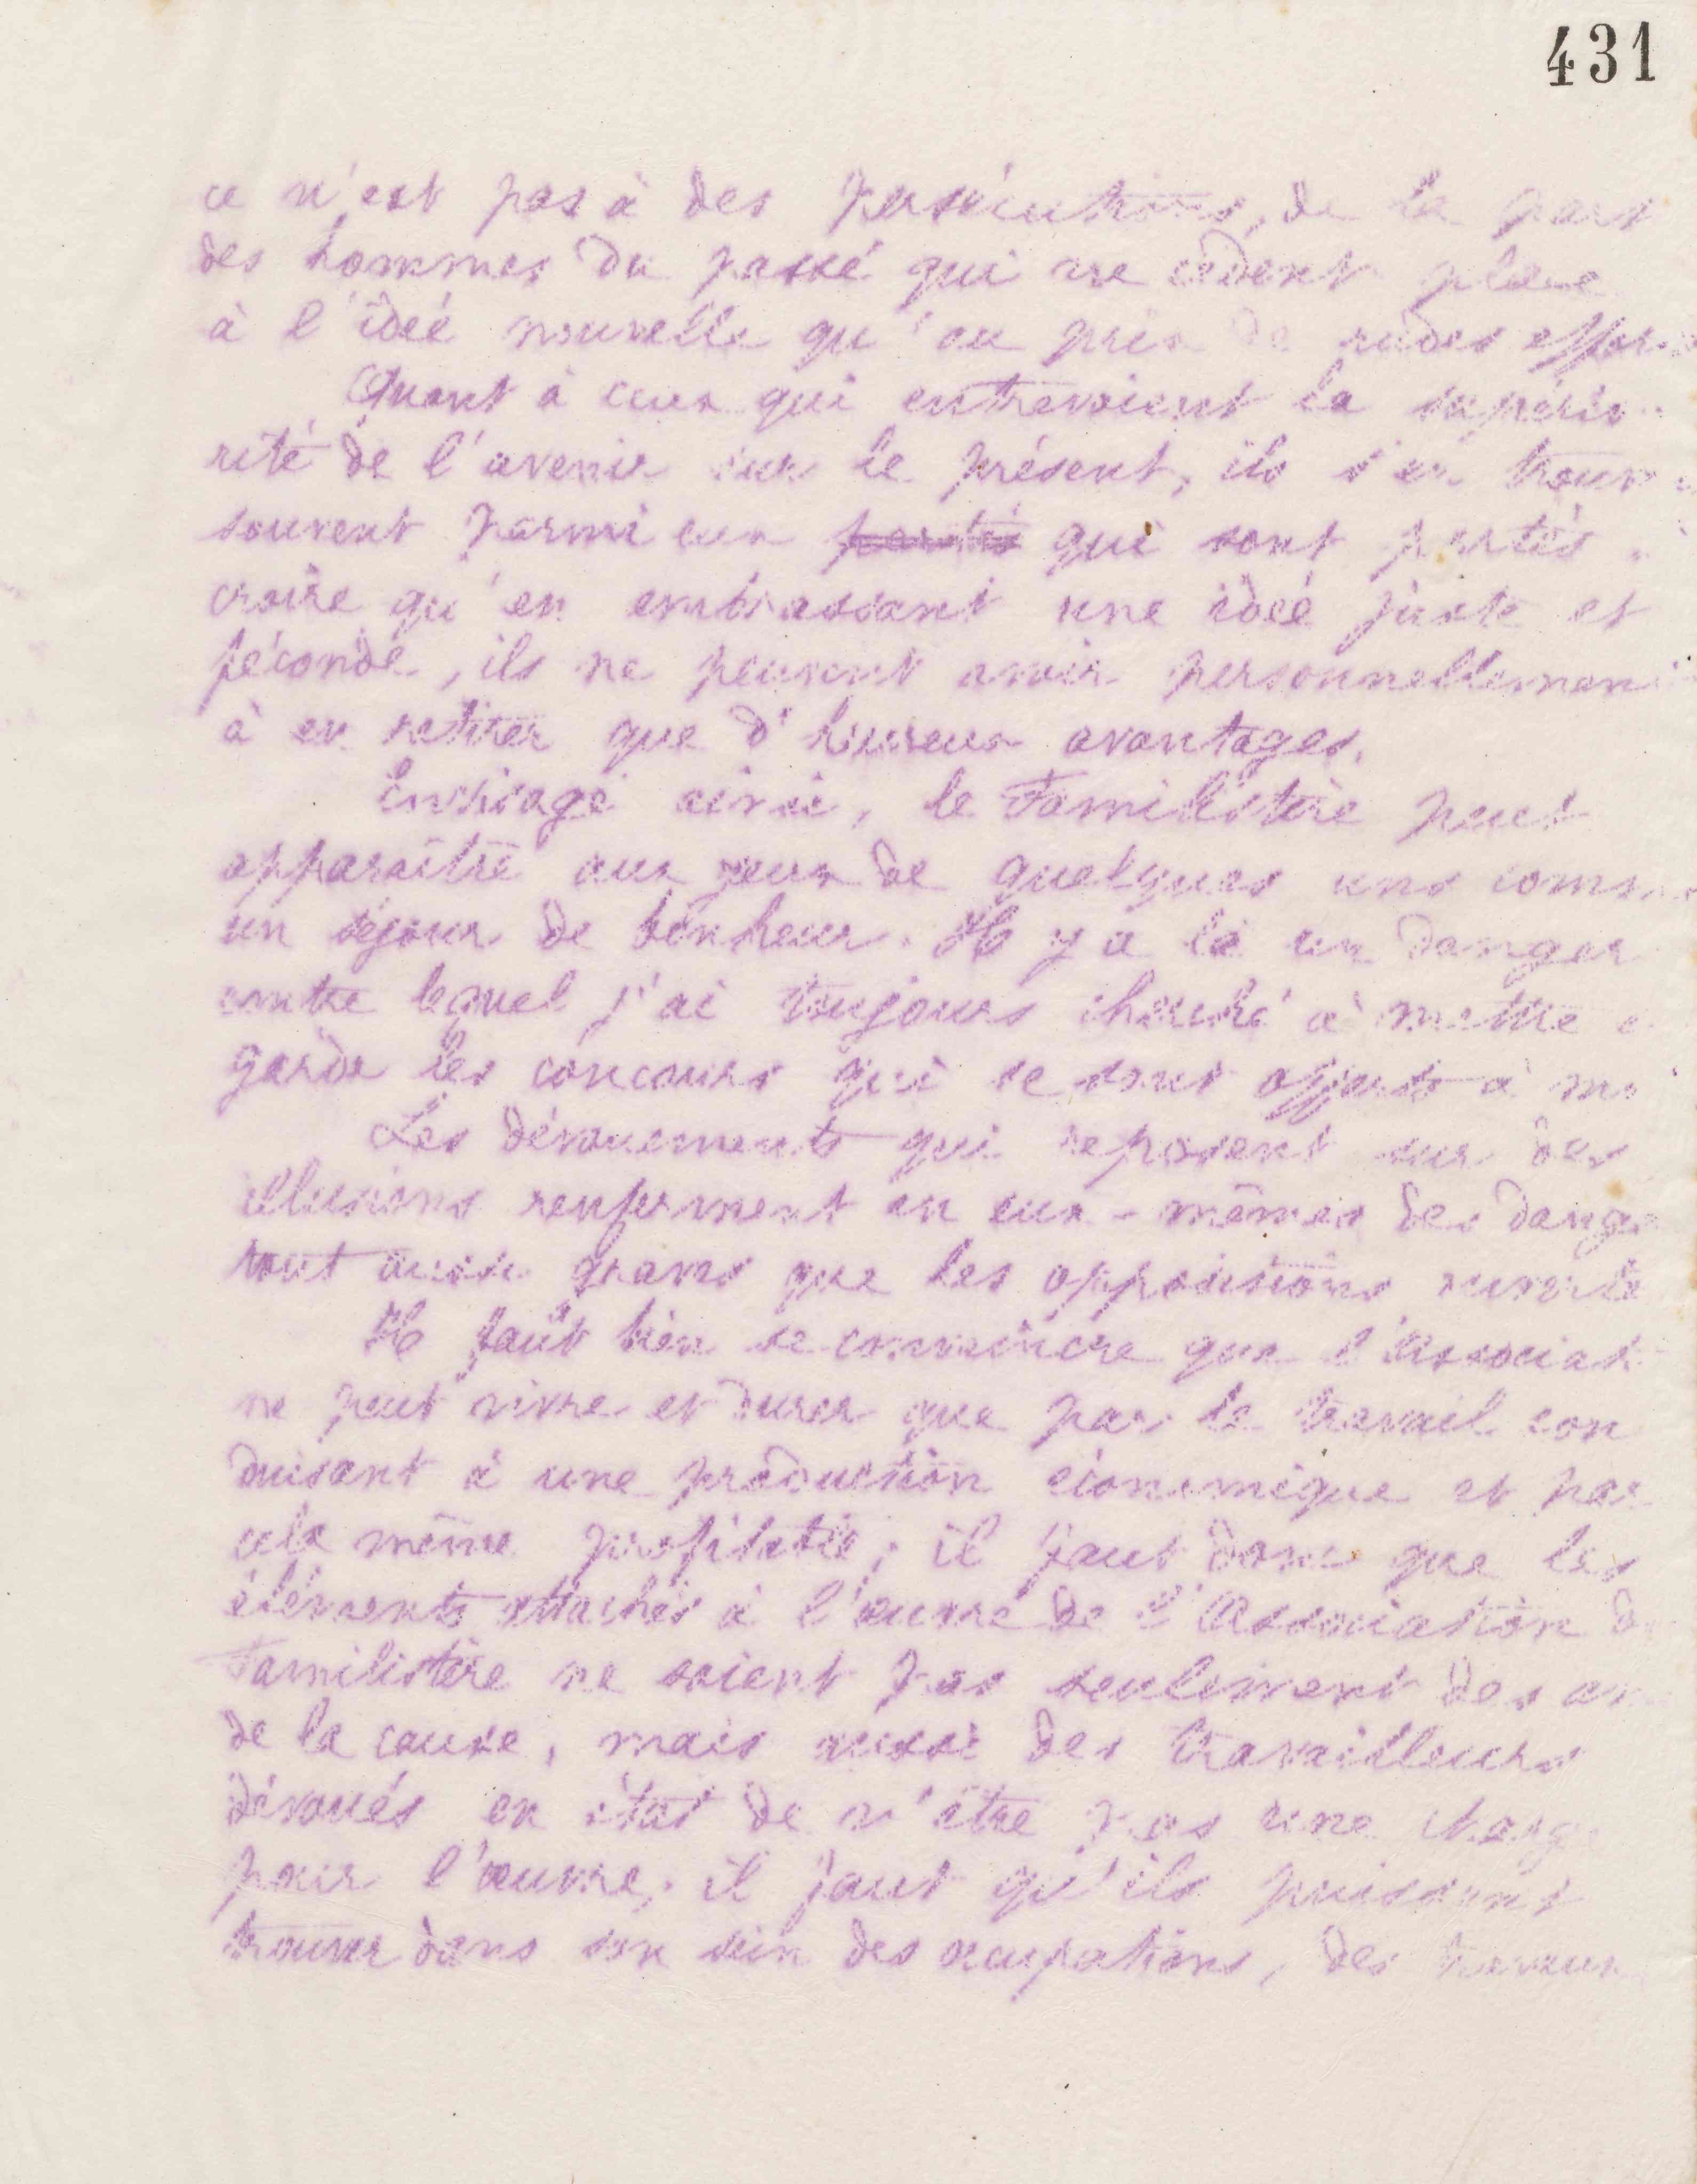 431
ce n'est pas à des persécutions, de la part
des hommes du passé qui ne cèdent place
à l'idée nouvelle qu'au prix de rudes effor
Quant à ceux qui entrevoient la supério
rité de l'avenir sur le présent, ils s'en trouv
souvent parmi eux portés qui sont portés à
croire qu'en embrassant une idée juste et
féconde, ils ne peuvent avoir personnellement
à en retirer que d'heureux avantages.
Envisagé ainsi, le Familistère peut
apparaître aux yeux de quelques uns comme
un séjour de bonheur. Il y a là un danger
contre lequel j'ai toujours cherché à mettre e
garde les concours qui se sont offerts à mo
Les dévouements qui reposent sur des
illusions renferment en eux-mêmes des dange
tout aussi graves que les oppositions
Il faut bien se convaincre que l'associat
ne peut vivre et durer que par le travail con
duisant à une production économique et par
cela même profitable; il faut donc que les
éléments attachés à l'œuvre de l'Association d
Familistère ne soient pas seulement des am
de la cause, mais aussi des travailleurs
dévoués en état de n'être pas une charg
pour l'œuvre; il faut qu'ils puissent
trouver dans son sein des occupations, des travaux